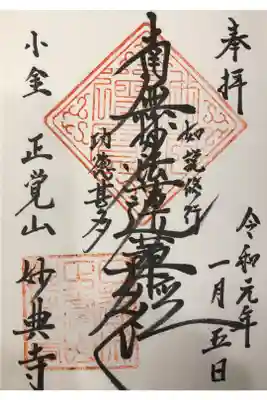 奉拝
令和元年
一月五日
如説修行
南無妙法蓮華経
功徳甚多
小金 正覚山
妙典寺